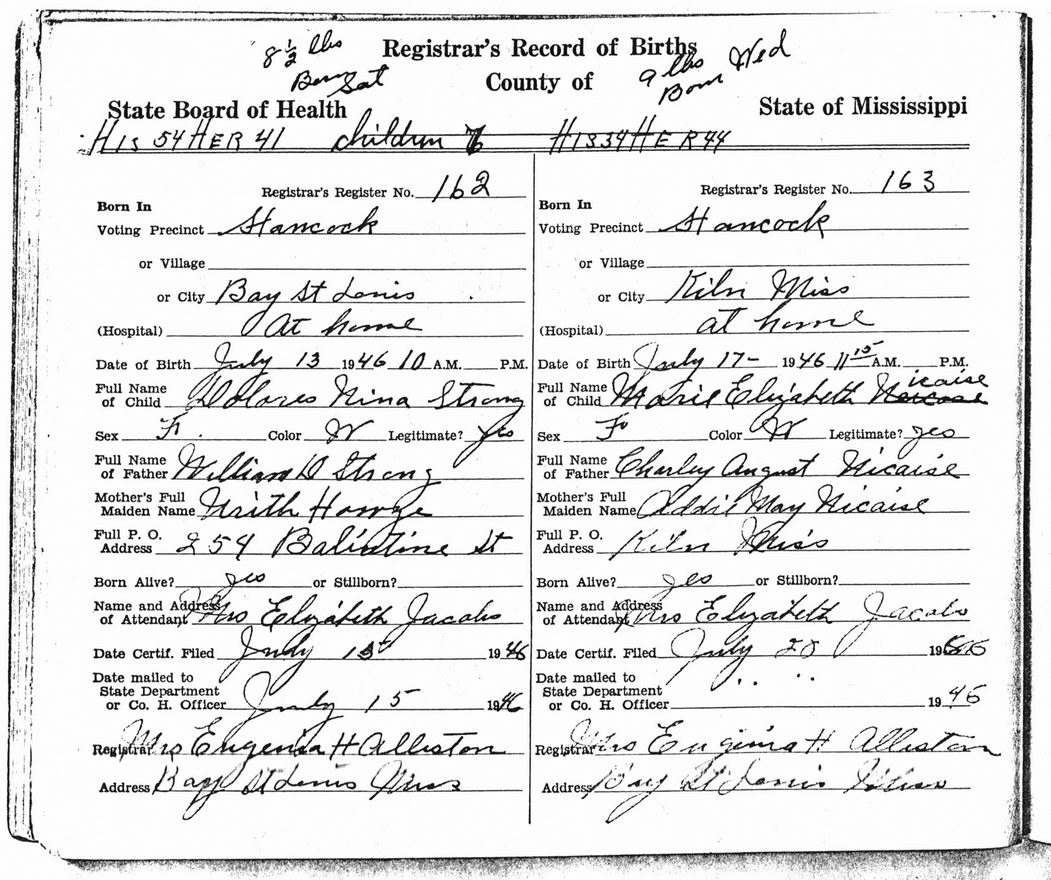 8 1/2 lbs
Born Sat
Registrar's Record of Births
County of
9 lbs
Born Wed
State Board of Health
State of Mississippi
HIS 54 HER 41 children HIS 34 HER 44
Registrar's Register No. 162
Born In
Voting Precinct Hancock
or Village
or City Bay St Louis
(Hospital) At home
Date of Birth July 13 1946 10 A.M. P.M.
Full Name
of Child Dolores Nina Strong
Sex F. Color W Legitimate? yes
Full Name
of Father William D Strong
Mother's Full
Maiden Name Howze
Full P. O.
Address 254 St
Born Alive? yes or Stillborn?
Name and Address
of Attendant Mrs Elizabeth Jacobs
Date Certif. Filed July 15 1946
Date mailed to
State Department
or Co. H. Officer July 15 1946
Registrar Mrs Eugenia H Alliston
Address Bay St Louis Miss
Registrar's Register No. 163
Born In
Voting Precinct Hancock
or Village
or City Kiln Miss
(Hospital) at home
Date of Birth July 17- 1946 11 15 A.M. P.M.
Full Name
of Child Marie Elizabeth Nicaise
Sex F Color W Legitimate? yes
Full Name
of Father Charley August Nicaise
Mother's Full
Maiden Name Addie May Nicaise
Full P. O.
Address Kiln Miss
Born Alive? yes or Stillborn?
Name and Address
of Attendant Mrs Elizabeth Jacobs
Date Certif. Filed July 20 19
Date mailed to
State Department
or Co. H. Officer " " 1946
Registrar Mrs Eugenia H Alliston
Address Bay St Louis Miss